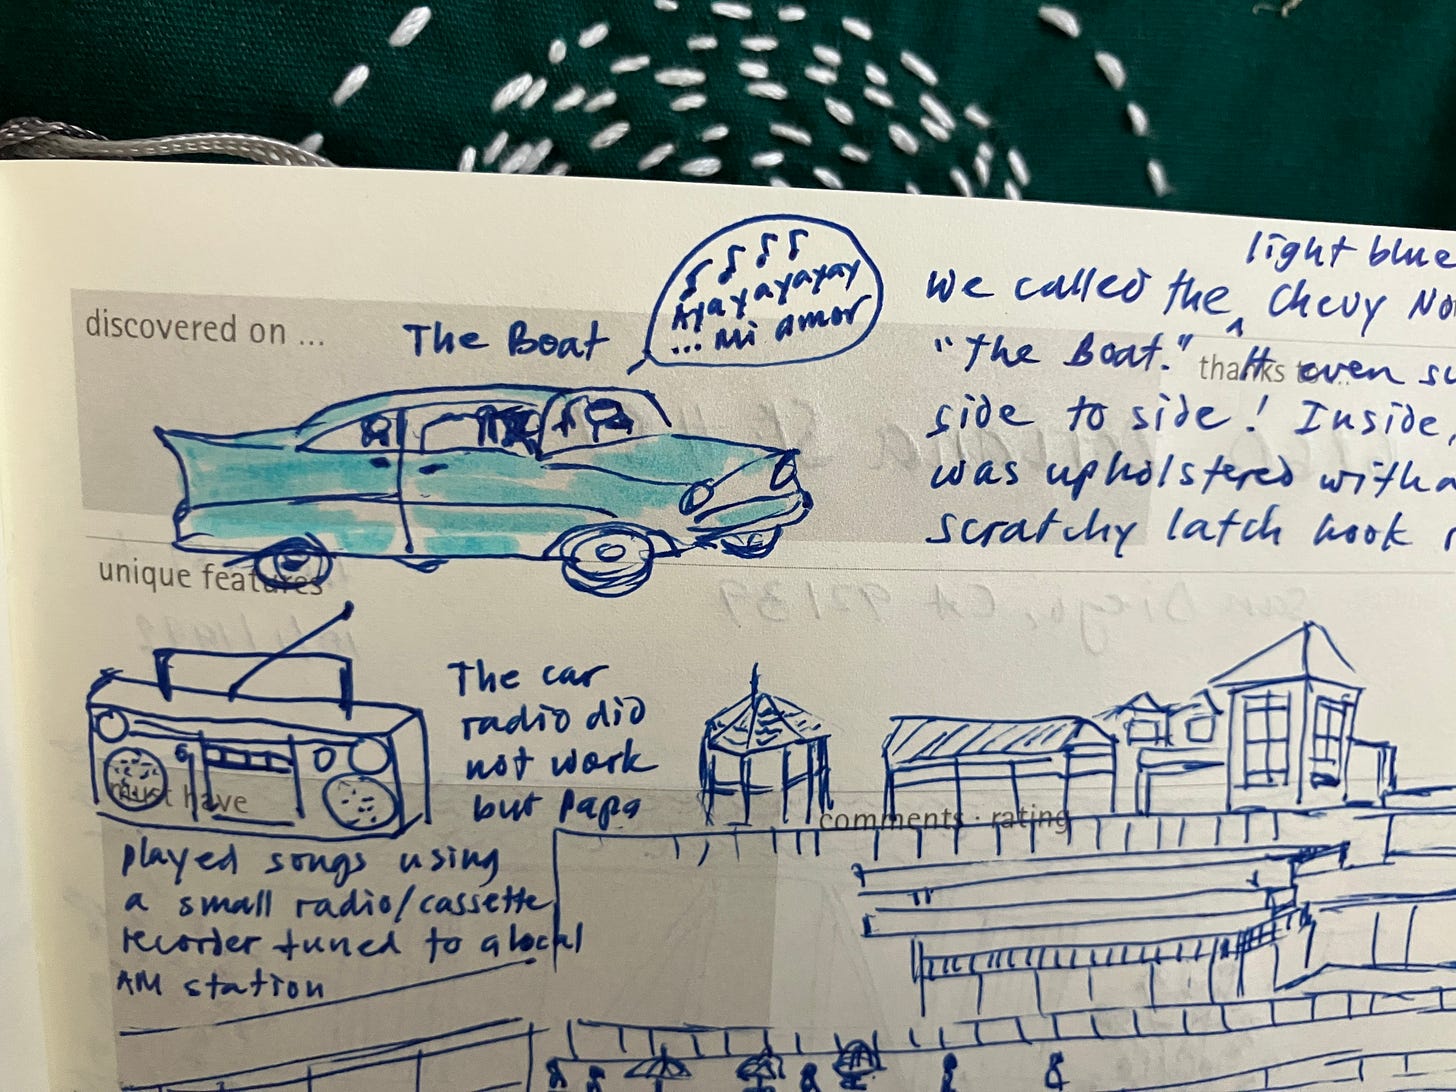 light blue
We called the ^ Chevy No
"The Boat." It even su
side to side! Inside,
was upholstered with a
scratchy latch hook
discovered on ...
The Boat
Ayayayayayay
... Mi amor
thanks to...
unique features
The car
radio did
not work
but Papa
played songs using
a small radio/cassette
recorder tuned to a local
AM station
must have
comments · rating
San Diego, CA 92139